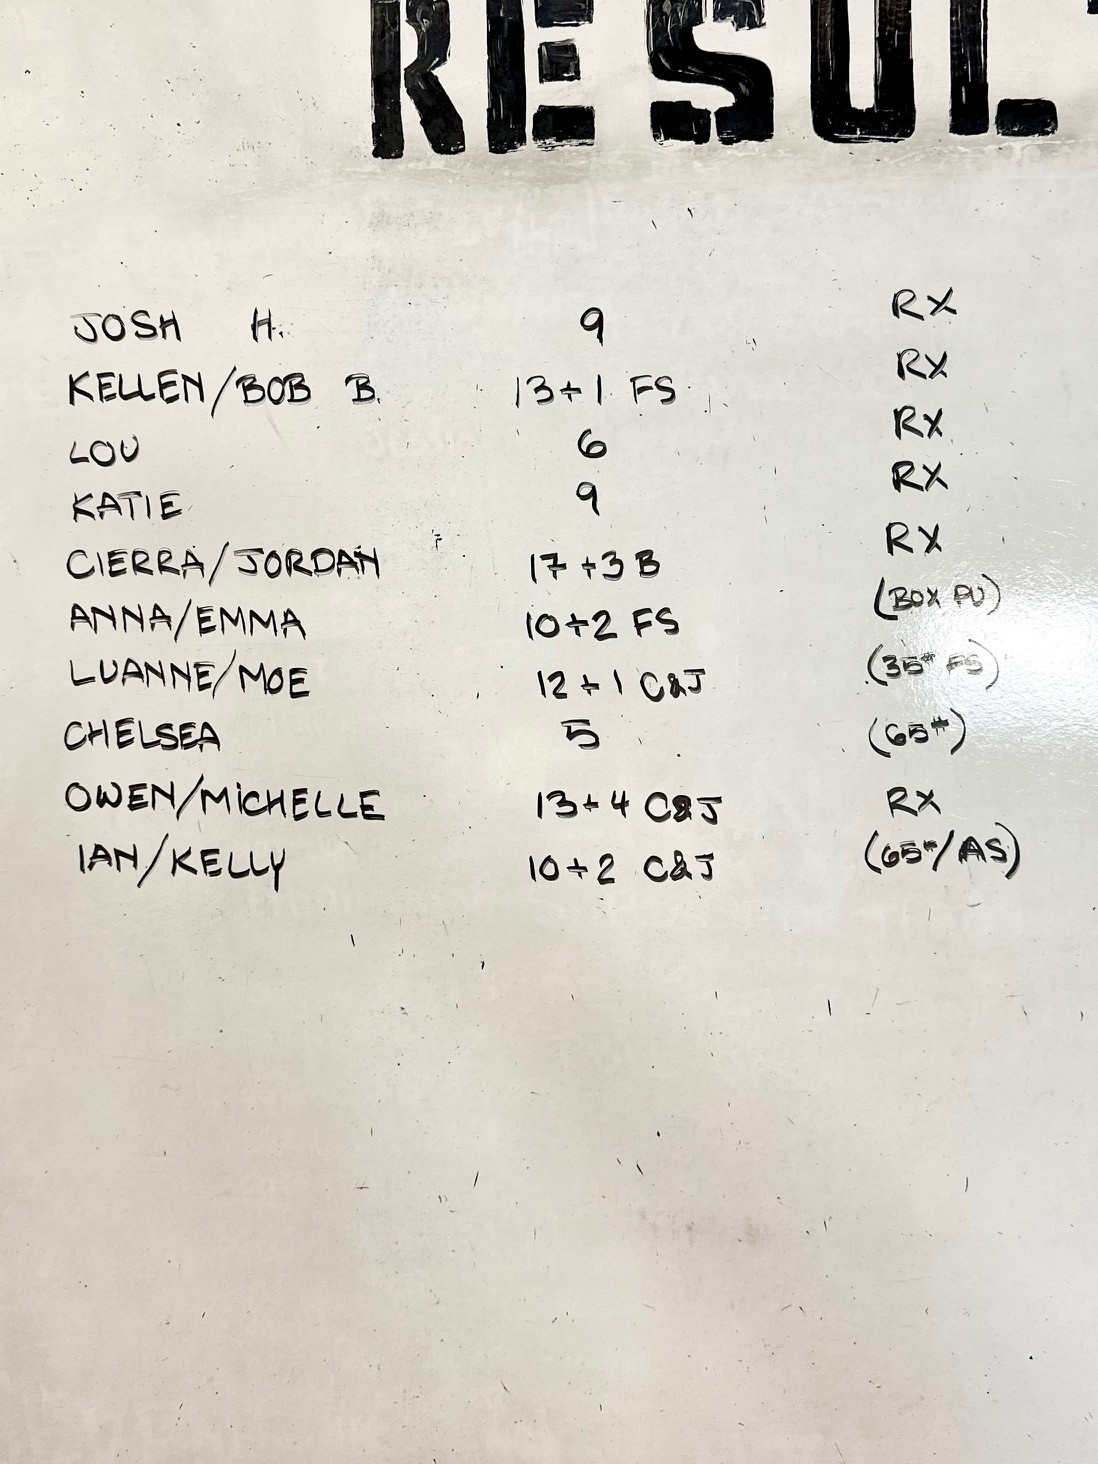 RESULT
JOSH H. 9 RX
KELLEN/BOB B. 13+1 FS RX
LOU 6 RX
KATIE 9 RX
CIERRA/JORDAN 17+3 B RX
ANNA/EMMA 10+2 FS (BOX PU)
LUANNE/MOE 12+1 C&J (35# FS)
CHELSEA 5 (65#)
OWEN/MICHELLE 13+4 C&J RX
IAN/KELLY 10+2 C&J (65#/AS)